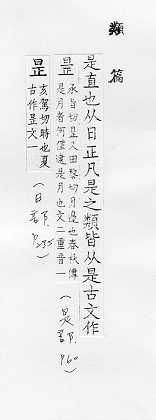 類篇
是直也从日正凡是之類皆从是古文作
昰
承旨切是又田黎切月邊也春秋傳
是月者何僅逮是月也文二重音一
(是部 P60)
昰
亥駕切時也夏
古作昰文一
(日部